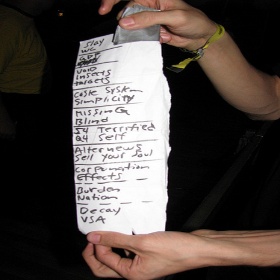 Slay
WC
Void
Insects
targets
Caste System
Simplicity
Missing
Blind
54 Terrified
Q4 Self
Alternews
Sell your soul
Corporation
Effects
Burden
Nation
Decay
USA